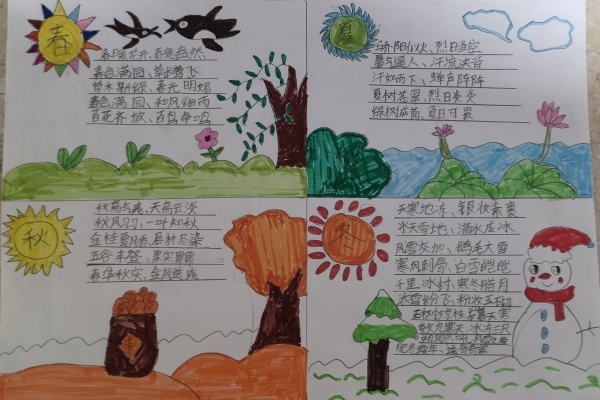 春
春暖花开、春意盎然
春色满园、草长莺飞
草木斯绿、春光明媚
春色满园、和风细雨
百花齐放、百鸟争鸣
夏
骄阳似火、烈日当空
暑气逼人、汗流浃背
汗如雨下、蝉声阵阵
夏树苍翠、烈日炎炎
绿树成荫、夏日可畏
秋
秋高气爽、天高云淡
秋风习习、一叶知秋
金桂飘香、层林尽染
五谷丰登、果实累累
春华秋实、金风送爽
丰
冬
天寒地冻、银妆素裹
冰天雪地、滴水成冰
风雪交加、鹅毛大雪
寒风刺骨、白雪皑皑
千里冰封、寒冬腊月
冰雪纷飞、粉妆玉砌
数九寒天、冰冻三尺